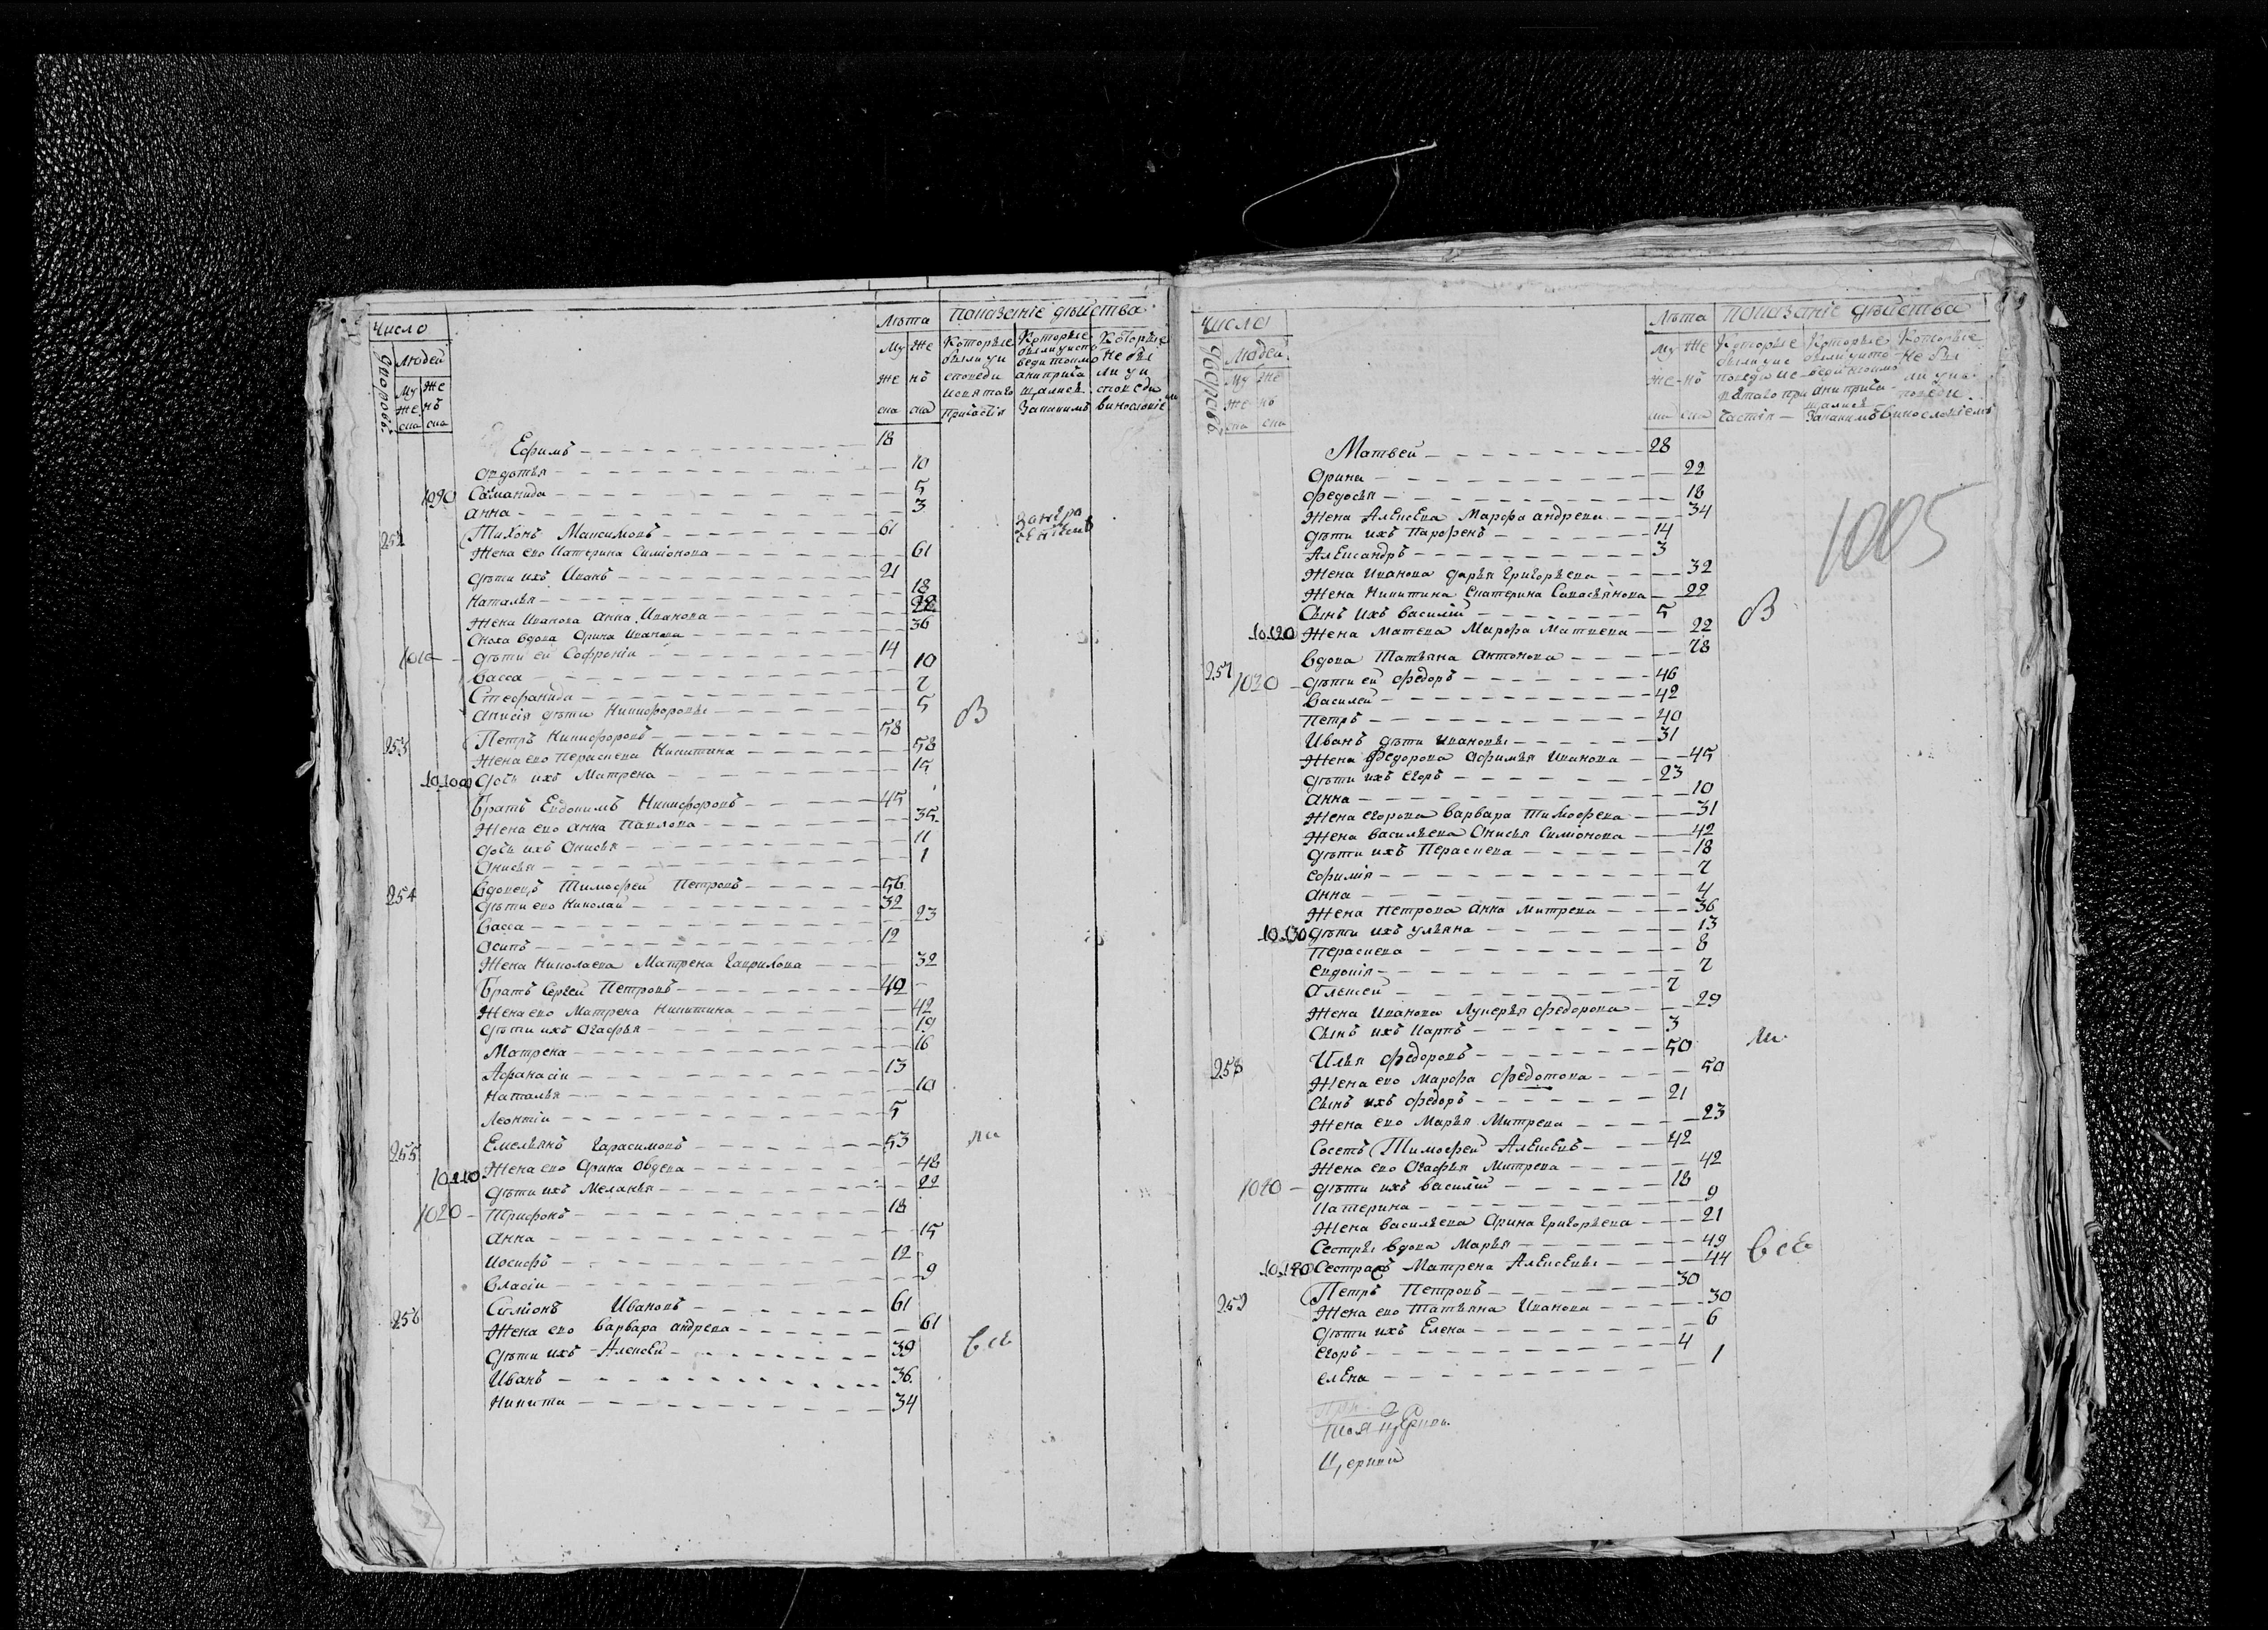 Число
Лѣта
Показаніе дѣйства
Дворовъ
Людей
Му Же
же нъ
ска ска
Му Же
же нъ
ска ска
Которые были у исповеди и святаго причастія
Которые были у исповеди токмо а не прича щались за какимъ
Которые не были у исповеди винословіемъ
Ефимъ 18
Авдотья 10
1090 Саманида 5
Анна 3
252 Тихонъ Максимовъ 61
Жена его Катерина Симіонова 61
Дѣти ихъ Иванъ 21
Наталья 18
Жена Иванова Анна Иванова
Сноха вдова Орина Иванова 36
1010 Дѣти ей Софроніи 14
Васса 10
Стефанида 7
Анисія дѣти Никифоровы 5
253 Петръ Никифоровъ 58 В
Жена его Пераскева Никитина 58
10100 Дочь ихъ Матрена 15
Братъ Евдокимъ Никифоровъ 45
Жена его Анна Павлова 35
Дочь ихъ Онисья 11
Онисья 1
254 Вдовецъ Тимофей Петровъ 56
Дѣти его Николаи 32
Васса 23
Осипъ 12
Жена Николаева Матрена Гаврилова 32
Братъ Сергей Петровъ 42
Жена его Матрена Никитина 42
Дѣти ихъ Огафья 19
Матрена 16
Афанасіи 13
Наталья 10
Леонтіи 5
255 Емельянъ Гарасимовъ 53
Жена его Орина Овдева 48
10110 Дѣти ихъ Меланья 22
1020 Трифонъ 18
Анна 15
Иосифъ 12
Власіи 9
256 Симіонъ Ивановъ 61
Жена его Варвара Андрева 61
Дѣти ихъ Алексѣи 39 всѣ
Иванъ 36
Никита 34
Число
Лѣта
Показаніе дѣйства
Дворовъ
Людей
Му Же
же нъ
ска ска
Му Же
же нъ
ска ска
Которые были у исповеди и святаго при частія
Которые были у испо веди токмо а не прича щались за какимъ
Которые не были у исповеди винословіемъ
Матвеи 28
Орина 22
Федосья 18
1005
Жена Алексѣва Марфа Андрева 34
Дѣти ихъ Парфенъ 14
Алѣксандръ 3
Жена Иванова Дарья Григорьева 32
Жена Никитина Екатерина Савосьянова 22
Сынъ ихъ Василіи 5 В
10120 Жена Матвева Марфа Матвева 22
257 Вдова Татьяна Антонова 78
1030 Дѣти ей Федоръ 46
Василеи 42
Петръ 40
Иванъ дѣти Ивановы 31
Жена Федорова Афимья Иванова 45
Дѣти ихъ Егоръ 23
Анна 10
Жена Егорова Варвара Тимофева 31
Жена Васильева Онисья Симіонова 42
Дѣти ихъ Пераскева 18
Софимія 7
Анна 4
Жена Петрова Анна Митрева 36
10130 Дѣти ихъ Ульяна 13
Пераскева 8
Евдокія 7
Алексей 7
Жена Иванова Лукерья Федорова 29
Сынъ ихъ Карпъ 3
258 Илья Федоровъ 50
Жена его Марфа Федотова 50
Сынъ ихъ Федоръ 21
Жена его Марья Митрева 23
Сосетъ Тимофей Алѣксѣвъ 42
Жена его Огафья Митрева 42
1040 Дѣти ихъ Василіи 18
Катерина 9
Жена Васильева Орина Григорьева 21
Сестры вдова Марья 49 всѣ
10140 Сестра Матрена Алѣксѣвы 44
259 Петръ Петровъ 30
Жена его Татьяна Иванова 30
Дѣти ихъ Елена 6
Егоръ 4
Елѣна 1